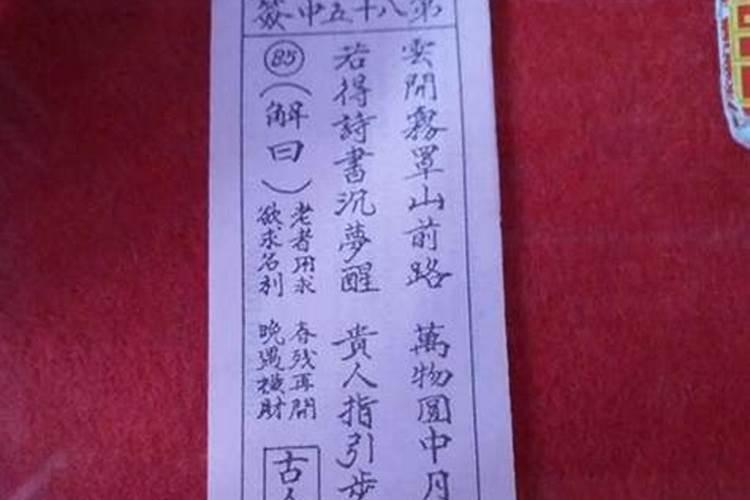 第八十五中簽
雲開霧罩山前路 萬物圓中月
若得詩書沉夢醒 貴人指引步
85
(解曰)
老者用求 春残再開
欲求名利 晚遇横財
古人